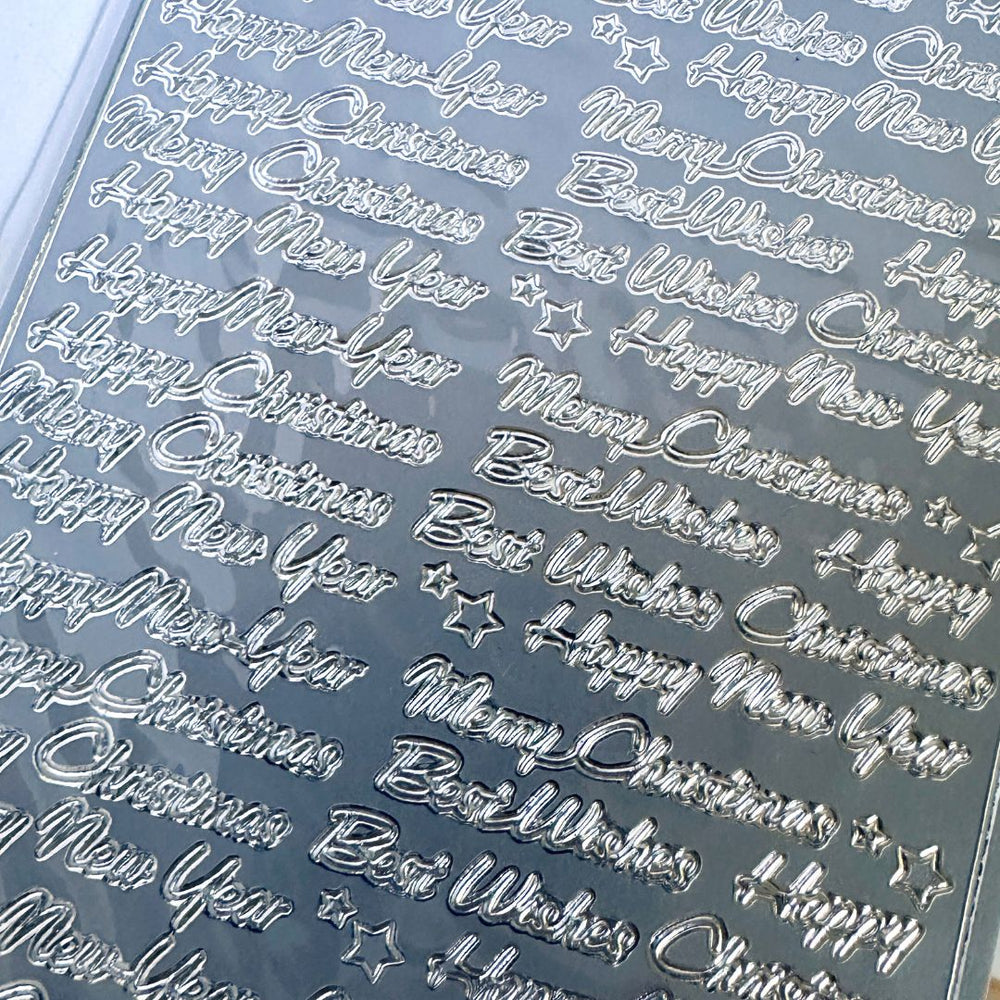 New Year
Best Wishes
Christ
Happy New Year
Happy New
Happy Christmas
Merry Christmas
Merry Christmas
Best Wishes
Happy New Year
Best Wishes
Happy
Happy New Year
Christmas
Happy Christmas
Happy New Year
Merry Christmas
Merry Christmas
Happy New Year
Best Wishes
Happy
Happy New Year
Best Wishes
Christmas
Happy Christmas
Happy New Year
Christmas
Merry Christmas
New Year
Best Wishes
Happy
New Year
Best Wishes
Christmas
Happy